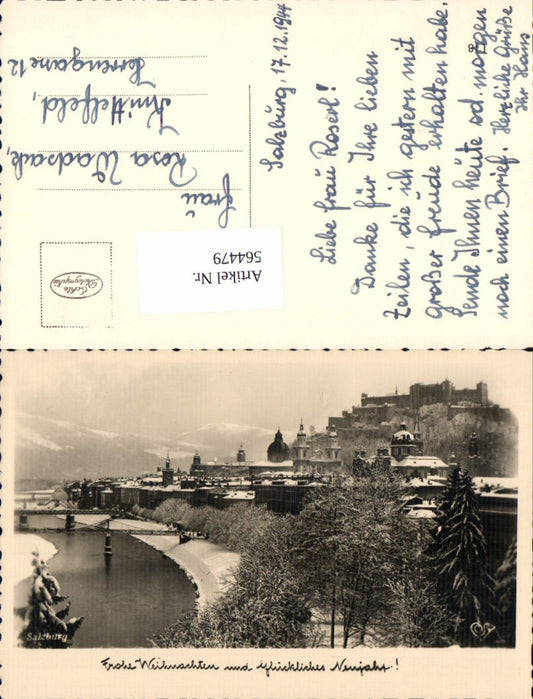 Salzburg, 17.12.1944
Liebe Frau Roserl!
Danke für Ihre lieben
Zeilen, die ich gestern mit
großer Freude erhalten habe.
Sende Ihnen heute od. morgen
noch einen Brief. Herzliche Grüße
Ihr Hans
Frau
Rosa Wadsack,
Knittelfeld,
Herrengasse 12
Echte
Photographie
Artikel Nr.
564479
Salzburg
Frohe Weihnachten und glückliches Neujahr!